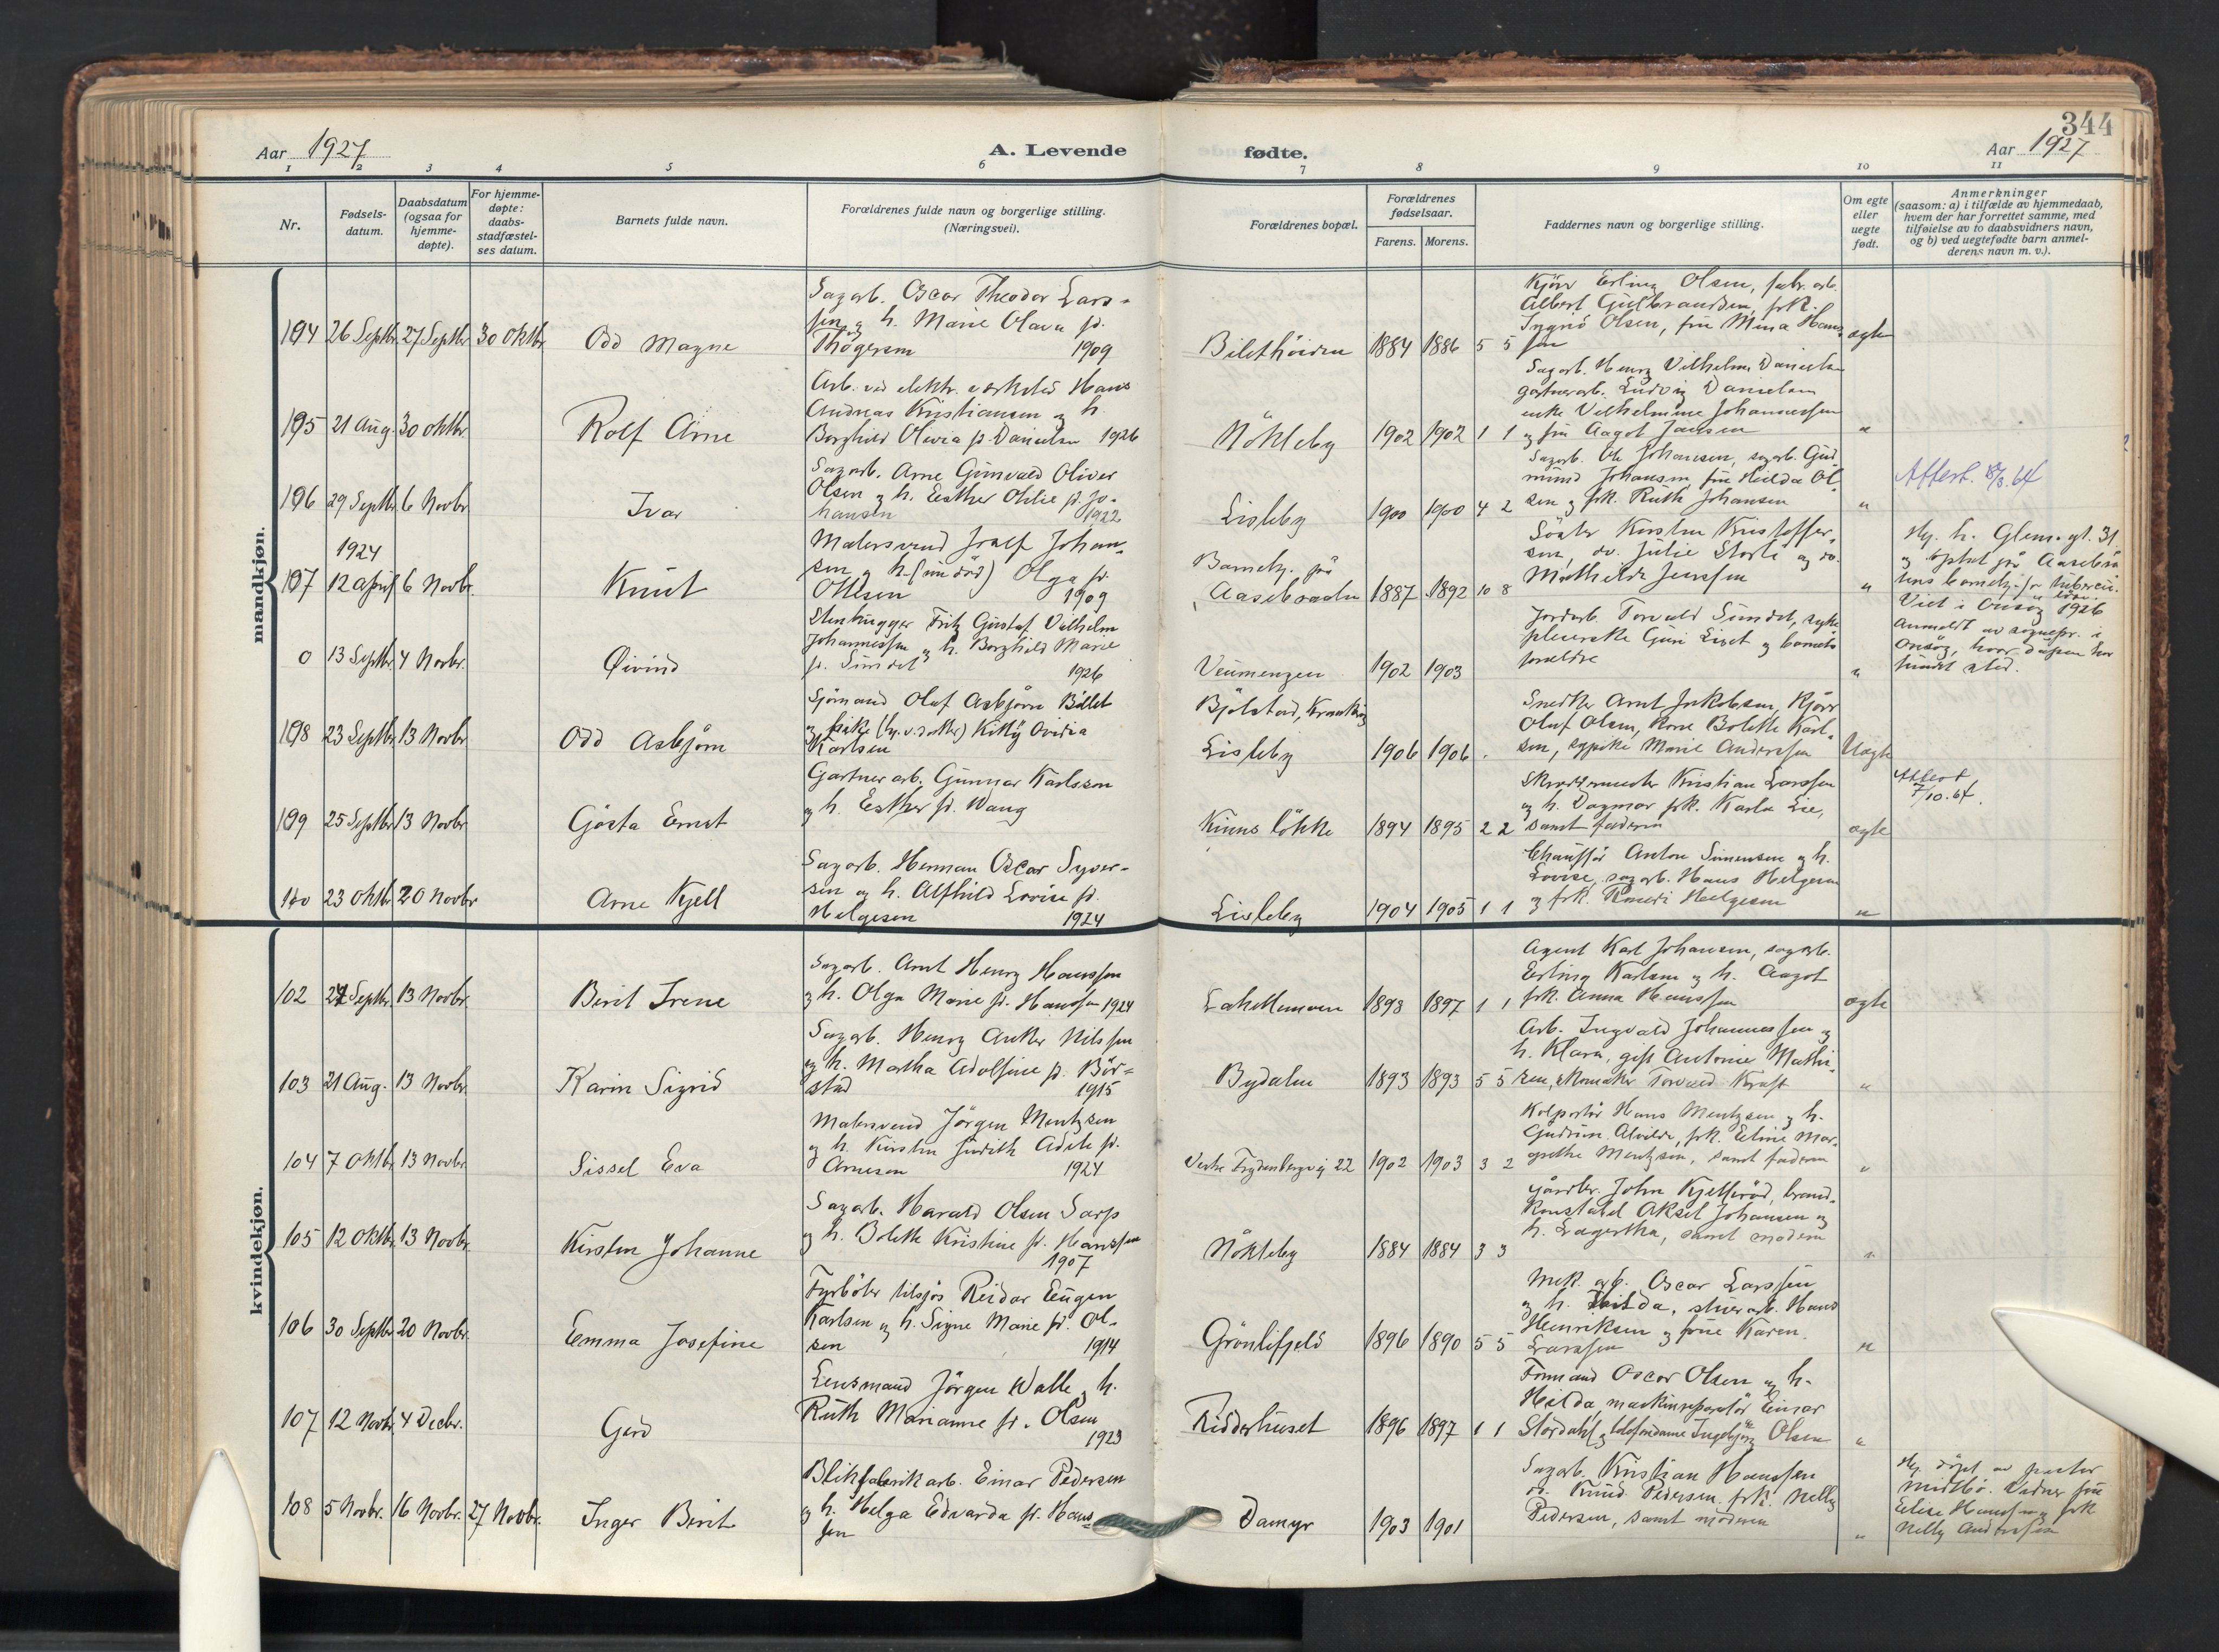 344
Aar 1927
A. Levende
fødte.
Aar 1927
1 2 3 4 5 6 7 8 9 10 11
Nr.
Fødsels-
datum.
Daabsdatum
(ogsaa for
hjemme-
døpte).
For hjemme-
døpte:
daabs-
stadfæstel-
ses datum.
Barnets fulde navn.
Forældrenes fulde navn og borgerlige stilling.
(Næringsvei).
Forældrenes bopæl.
Forældrenes
fødselsaar.
Farens. Morens.
Faddernes navn og borgerlige stilling.
Om egte
eller
uegte
født.
Anmerkninger
(saasom: a) i tilfælde av hjemmedaab,
hvem der har forrettet samme, med
tilføielse av to daabsvidners navn,
og b) ved uegtefødte barn anmel-
derens navn m. v.).
mandkjøn.
194 26 Septbr. 27 Septbr. 30 Oktbr. Odd Magne
Sagarb. Oscar Theodor Lars-
sen og h. Marie Olava f.
Thøgersen 1909
Bilethöiden 1884 1886 5 5
Kjörer Erling Olsen, fabr. arb.
Albert Gulbrandsen, frk.
Ingrid Olsen, fru Mina Hans-
sen
egte
195 21 Aug. 30 Oktbr. Rolf Arne
Arb. ved elektr. verksted Hans
Andreas Kristiansen og h.
Borghild Olivia f. Danielsen 1926
Nökleby 1902 1902 1 1
Sagarb. Henry Vilhelm Danielsen
gartnerarb. Ludvig Danielsen
enke Vilhelmine Johannessen
og fru Aagot Jansen
"
196 29 Septbr. 6 Novbr. Ivar
Sagarb. Arne Gunvald Oliver
Olsen og h. Esther Otilie f. Jo-
hansen 1922
Lisleby 1900 1900 4 2
Sagarb. Ole Johansen, sagarb. Gud-
mund Johansen, fru Hilda Ol-
sen og frk. Ruth Johansen
"
Attest. 8/3. 64
197 1924
12 April 6 Novbr. Knut
Malersvend Josef Johan-
sen og h. (nu død) Olga f.
Ottesen 1909
Barnehj. på
Aasebraaten 1887 1892 10 8
Söster Kirsten Kristoffer-
sen, do. Julie Storli og do.
Mathilde Jenssen
"
0 13 Septbr. 4 Novbr. Øivind
Stenhugger Fritz Gustaf Vilhelm
Johannessen og h. Borghild Marie
f. Sundet 1926
Veumengen 1902 1903
Jordarb. Torvald Sundet, syke
pleierske Guri Liset og barnets
forældre
"
Viet i Onsøy 1926
Anmeldt av sognepr. i
Onsøy, hvor dåpen har
fundet sted.
198 23 Septbr. 13 Novbr. Odd Asbjørn
Sjömand Olaf Asbjörn Billet
og pike Kitty Ovidia
Karlsen
Bjölstad, Kraakeröy
Lisleby 1906 1906
Snedker Arnt Jakobsen, Kjörer
Olaf Olsen, Kone Bolette Karl-
sen, sypike Marie Anderssen
Uegte
199 25 Septbr. 13 Novbr. Gösta Ernst
Gartner arb. Gunnar Karlsson
og h. Esther f. Wang
Kinns lökke 1894 1895 2 2
Skreddermester Kristian Larssen
og h. Dagmar frk. Karla Lie,
samt faderen
egte
Attest
7/10. 64.
23 Oktbr. 20 Novbr. Arne Kjell
Sagarb. Herman Oscar Syver-
sen og h. Alfhild Lovise f.
Helgesen 1924
Lisleby 1904 1905 1 1
Chauffør Anton Simensen og h.
Lovise, sagarb. Hans Helgesen
og frk. Helgesen
"
kvindekjøn.
102 27 Septbr. 13 Novbr. Berit Irene
Sagarb. Arnt Henry Hanssen
og h. Olga Marie f. Hanssen 1924
Lahellemoen 1898 1897 1 1
Agent Karl Johansen, sagarb.
Erling Karlsen og h. Aagot
frk. Anna Hanssen
egte
103 21 Aug. 13 Novbr. Karin Sigrid
Sagarb. Henry Anker Nilssen
og h. Martha Adolfine f. Bör-
stad 1915
Bydalen 1893 1893 5 5
Arb. Ingvald Johannessen og
h. Klara, gift Antonie Mathi-
sen, skomaker Torvald Kraft
"
104 7 Oktbr. 13 Novbr. Sissel Eva
Malersvend Jörgen Mentzsen
og h. Kirsten Judith Adele f.
Arnesen 1924
Vestre Frydenbergvej 22 1902 1903 3 2
Kolportör Hans Mentzsen og h.
Gudrun Alvilde, frk. Eline Mar-
grethe Mentzsen, samt faderen
"
105 12 Oktbr. 13 Novbr. Kirsten Johanne
Sagarb. Harald Olsen Sarp
og h. Bolette Kristine f. Hanssen
1907
Nökleby 1884 1884 3 3
Gårdbr. John Kjelleröd, brand-
konstabel Aksel Johansen og
h. Lagertha, samt moderen
"
106 30 Septbr. 20 Novbr. Emma Josefine
Fyrböter tilsjös Reidar Eugen
Karlsen og h. Signe Marie f. Ol-
sen 1914
Grönlifjeld 1896 1890 5 5
Mek. arb. Oscar Larssen
og h. Hilda, stuerarb. Hans
Henriksen og frue Karen
Larssen
"
107 12 Novbr. 4 Decbr. Gerd
Lensmand Jörgen Walle og h.
Ruth Marianne f. Olsen
1923
Ridderhuset 1896 1897 1 1
Formand Oscar Olsen og h.
Hilda maskinreparatör Einar
Stordahl og telefondame Ingebjörg Olsen
"
108 5 Novbr. 16 Novbr. 27 Novbr. Inger Berit
Blikfabrikarb. Einar Pedersen
og h. Helga Edvarda f. Hans-
sen
Damyr 1903 1901
Sagarb. Kristian Hanssen
do. Knud Pedersen frk. Nelly
Pedersen, samt moderen
"
Hj. döpt av pastor
Midtbö. Vidner fru
Elise Hanssen og frk
Nelly Anderssen